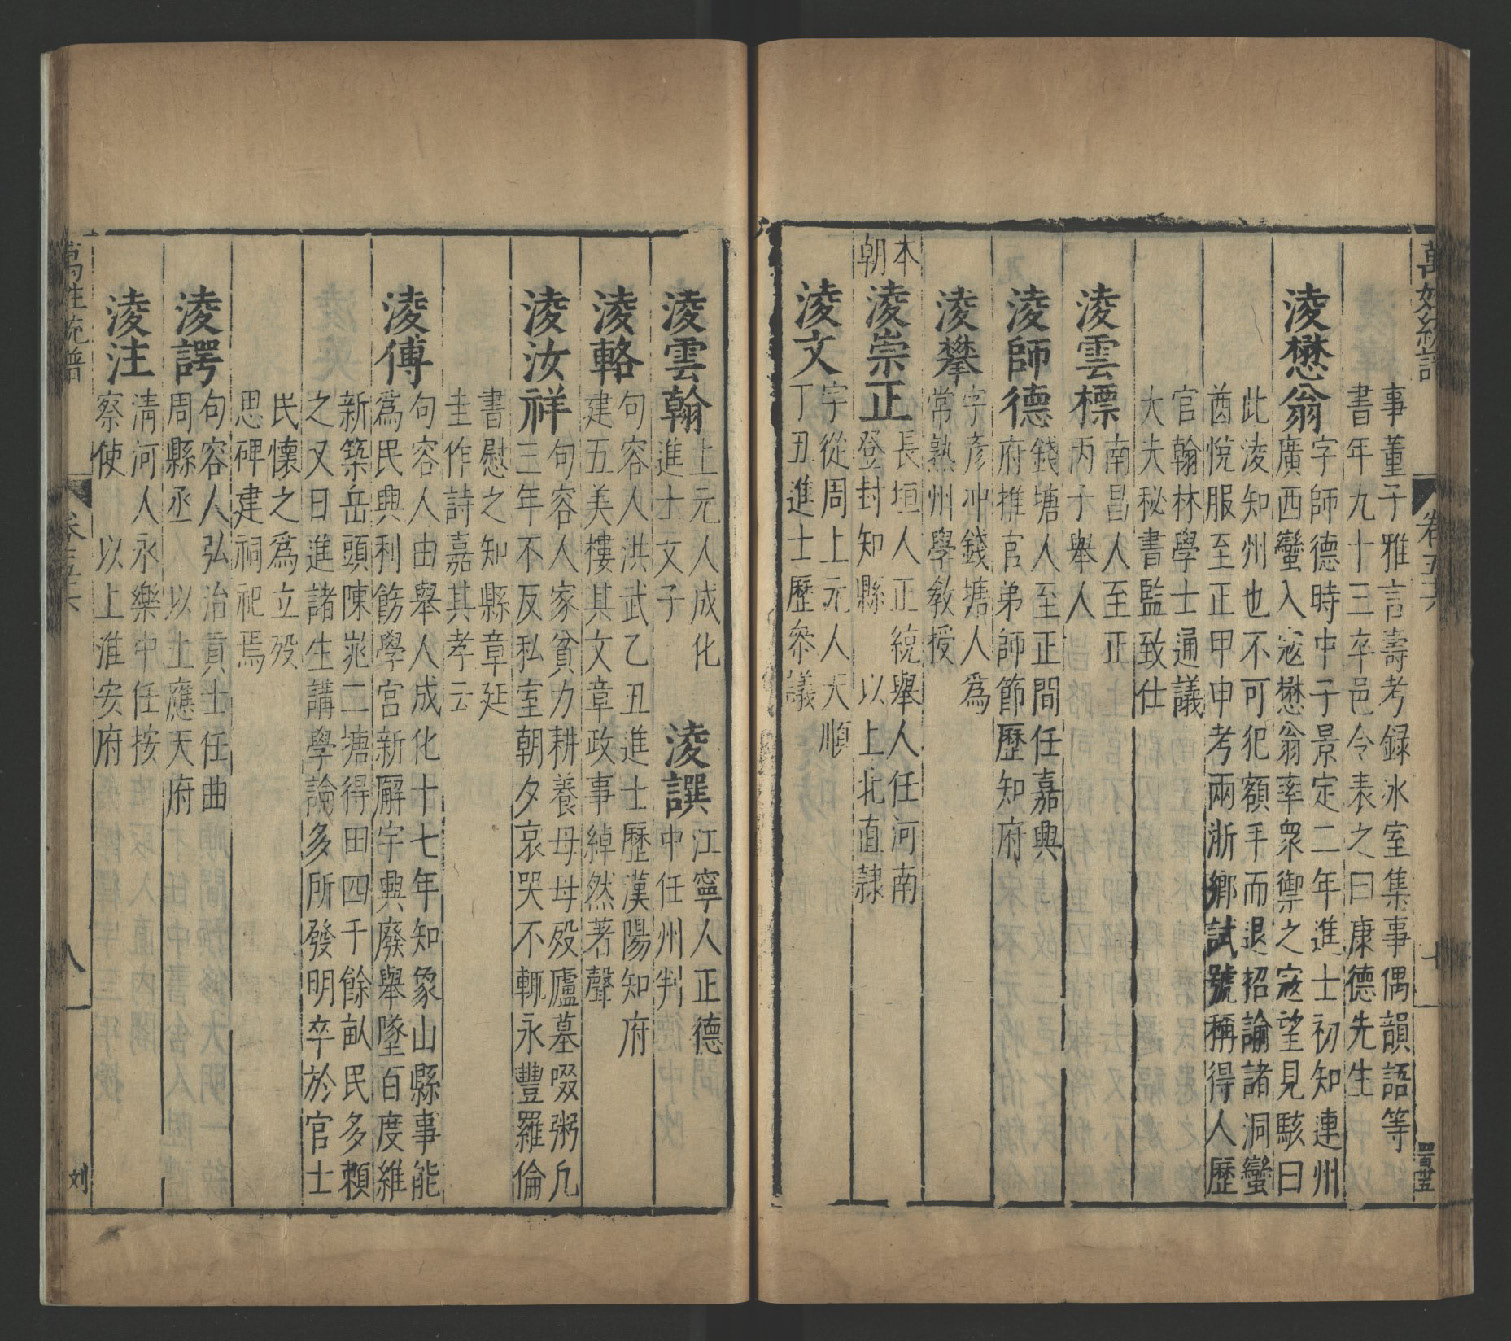 萬姓統譜
卷五六
七
事董子雅言壽考録氷室集事偶韻語等
書年九十三卒邑令表之曰康德先生
凌懋翁字師德時中子景定二年進士初知連州
廣西蠻入寇懋翁率衆禦之寇望見駭曰
此凌知州也不可犯額手而退招諭諸洞蠻
酋悅服至正甲申考兩浙鄉試號稱得人歷
官翰林學士通議
大夫秘書監致仕
凌雲標南昌人至正
丙子舉人
凌師德錢塘人至正間任嘉興
府推官弟師節歷知府
凌攀字彥冲錢塘人為
常熟州學教授
本朝
凌崇正長垣人正統舉人任河南
登封知縣 以上北直隸
凌文字從周上元人天順
丁丑進士歷叅議
凌雲翰上元人成化
進士文子
凌譔江寧人正德
中任州判
凌輅句容人洪武乙丑進士歷漢陽知府
建五美樓其文章政事綽然著聲
凌汝祥句容人家貧力耕養母母殁廬墓啜粥凡
三年不反私室朝夕哀哭不輟永豐羅倫
書慰之知縣章廷
圭作詩嘉其孝云
凌傅句容人由舉人成化十七年知象山縣事能
為民興利飭學宮新廨宇興廢舉墜百度維
新築岳頭陳㟁二塘得田四千餘畝民多賴
之又日進諸生講學論多所發明卒於官士
民懷之為立殁
思碑建祠祀焉
凌諤句容人弘治貢士任曲
周縣丞 以上應天府
凌注清河人永樂中任按
察使 以上淮安府
萬姓統譜
卷五六
八
刘